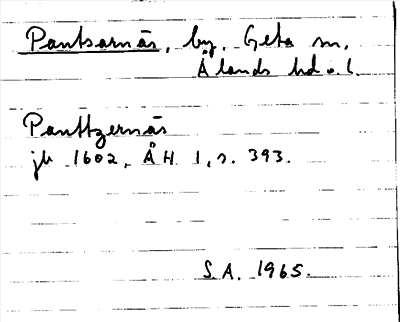 Pantsarnäs, by, Geta sn,
Ålands hd o. l.
Panttzernäs
jb 1602, ÅH 1, s. 393.
S.A. 1965.